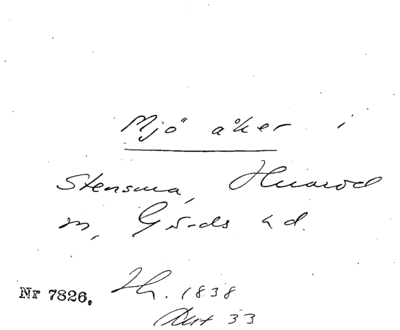 Mjö åker i
Stensma, Huaröd
sn, Gärds hd.
Nr 7826. Th. 1838
Akt 33